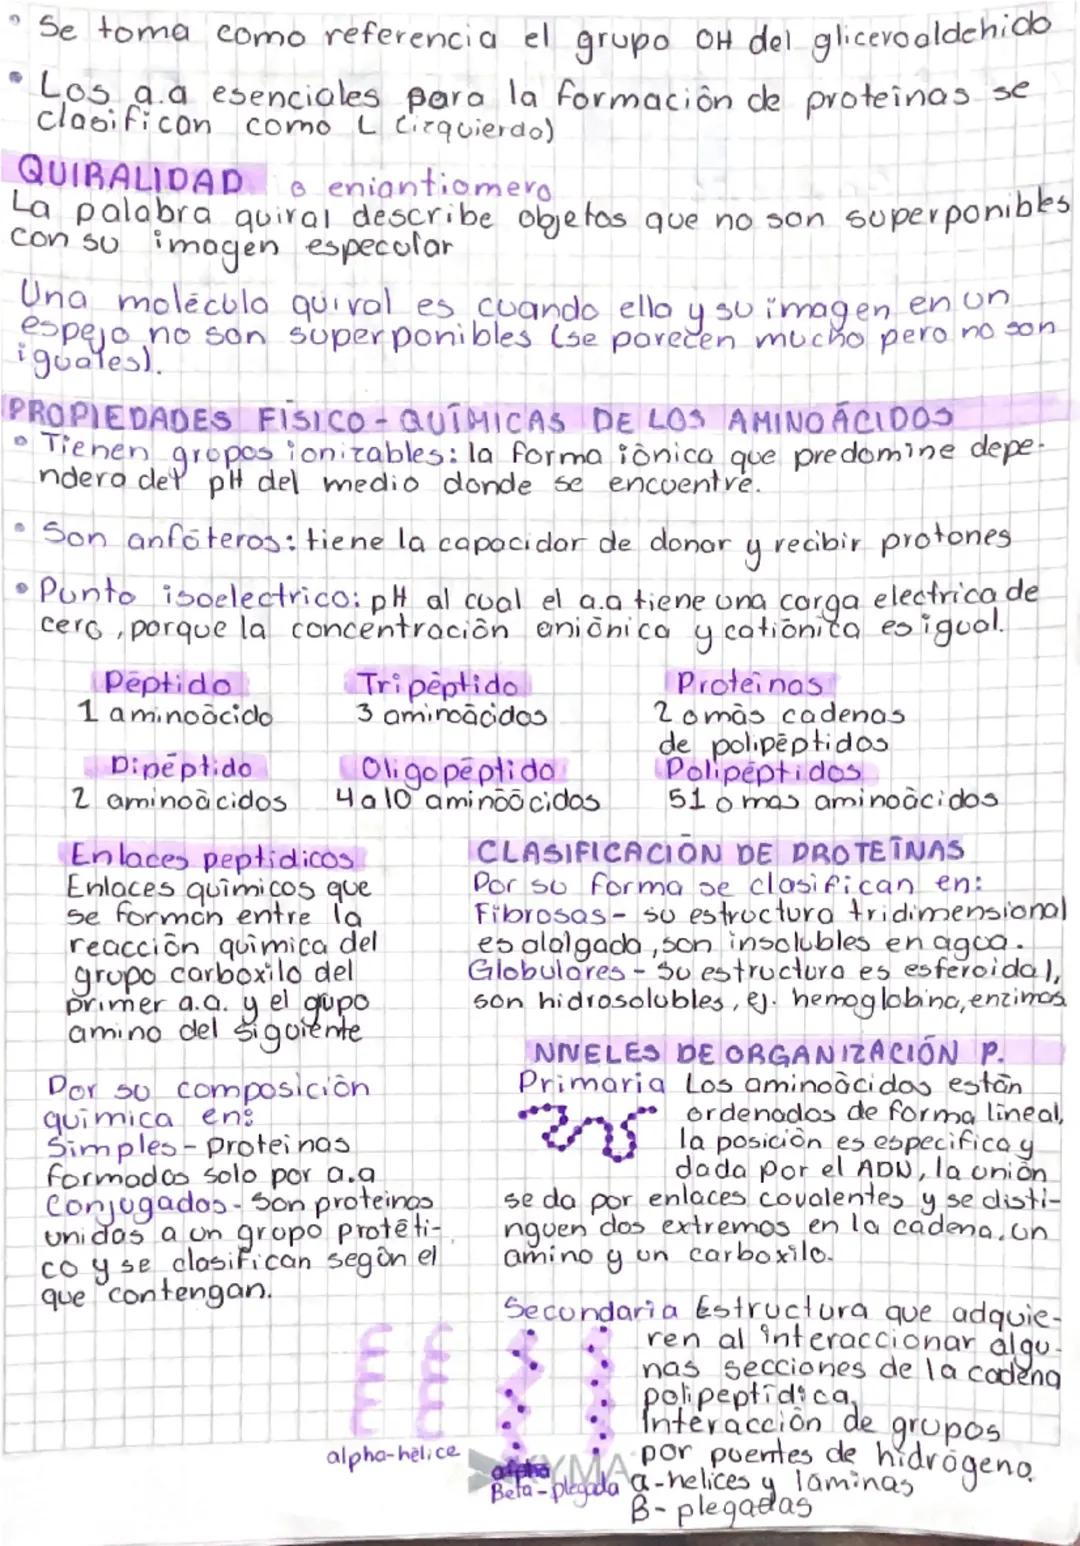 Se toma como referencia el grupo OH del gliceroaldehido
Los a.a esenciales para la formación de proteínas se
clasifican como L (izquierdo)
QUIRALIDAD o eniantiomero
La palabra quiral describe objetos que no son superponibles
con su imagen especular
Una molécula quiral es cuando ella y su imagen en un
espejo no son superponibles (se parecen mucho pero no son
iguales).
PROPIEDADES FÍSICO-QUÍMICAS DE LOS AMINOÁCIDOS
Tienen grupos ionizables: la forma iónica que predomine depe-
ndera del pH del medio donde se encuentre.
Son anfóteros: tiene la capacidar de donar y recibir protones
Punto isoelectrico: pH al cual el a.a tiene una carga electrica de
cero, porque la concentración aniónica y catiónica es igual.
Péptido
1 aminoácido
Tripéptido
3 aminoácidos
Proteinas
2 o más cadenas
de polipéptidos
Dipéptido
2 aminoácidos
Oligopéptido
4 a 10 aminoácidos
Polipéptidos
51 o mas aminoácidos
Enlaces peptidicos
Enlaces químicos que
se forman entre la
reacción química del
grupo carboxilo del
primer a.a. y el gupo
amino del siguiente
Por su composición
química en:
Simples - proteinas
formadas solo por a.a
Conjugados - Son proteinas
unidas a un grupo protéti-
co y se clasifican según el
que contengan.
CLASIFICACIÓN DE PROTEÍNAS
Por su forma se clasifican en:
Fibrosas - su estructura tridimensional
es alalgada, son insolubles en agua.
Globulares - Su estructura es esferoidal,
son hidrosolubles, ej. hemoglobina, enzimas
NIVELES DE ORGANIZACIÓN P.
Primaria Los aminoácidos están
ordenados de forma lineal,
la posición es especifica y
dada por el ADN, la unión
se da por enlaces covalentes y se disti-
nguen dos extremos en la cadena, un
amino y un carboxilo.
Secundaria Estructura que adquie-
ren al interaccionar algu-
nas secciones de la cadena
polipeptídica,
Interacción de grupos
por puentes de hidrógeno
a-helices y láminas
B-plegadas
alpha-hélice
Beta-plegada